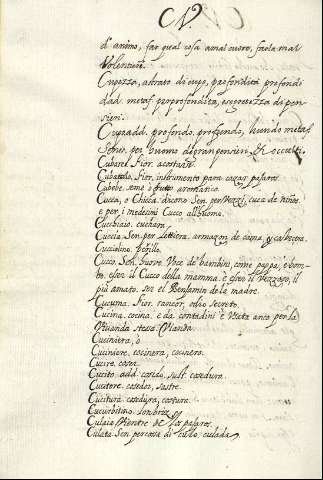 CV.
d'animo, far qual cosa a mal cuore, farla mal
Volentieri.
Cupezza, astrato di cupo, profondità profondi
dad metaf. per profondità, e segretezza di pen-
sieri.
Cupo add. profondo, profundo, hundo metaf
Sen. per huomo di gran pensieri
Cubarel. Fior.
Cubattolo, Fior. instrumento para cazar pajaros
Cubebe, seme è frutto aromatico
Cucca, o Chicca. dicono Sen. per Vezzi, cuca de niños
e per i medecimi Cucco all'huomo.
Cucchiaio, cuchara
Cuccia Sen. per lettiera, armazon de cama, y cabecera.
Cucciolino.
Cucco. Sen. huovo. Voce de bambini, come pappa, e bom-
bo. esser il Cucco della mamma. è esser il Vezzoso, il
più amato. ser el Benjamin de la madre.
Cucuma. Fior. rancor, odio secreto.
Cucina, cocina. è da contadini è detta anco per la
Vivanda stessa. Vianda
Cuciniera, o
Cuciniere, cocinera, cocinero.
Cucire, coser
Cucito. add. cosido, sust. cosedura.
Cucitore, cosedor, sastre.
Cucitura, cosedura, costura.
Cucurbitino,
Culaia Vientre de los pajaros.
Culata Sen. percossa di culo, culada